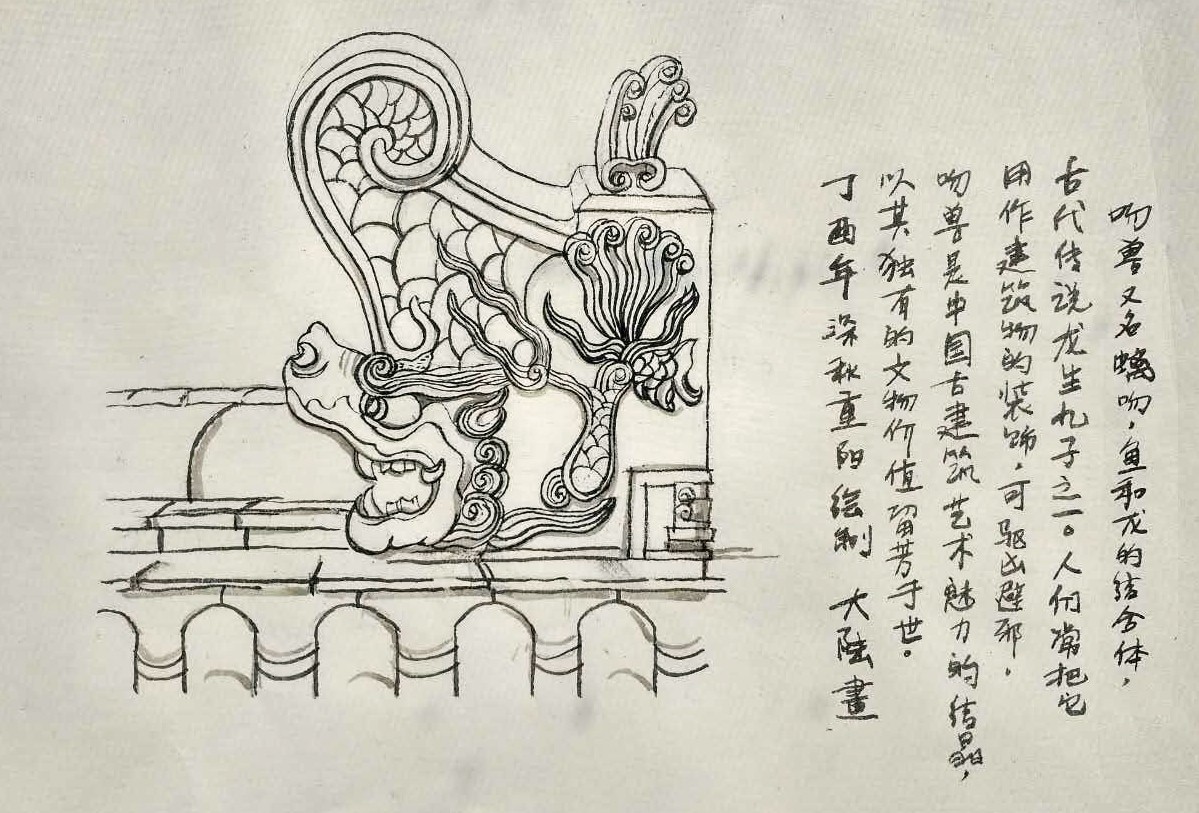 吻兽又名螭吻，鱼和龙的结合体，
古代传说龙生九子之一。人们常把它
用作建筑物的装饰，可驱凶避邪，
吻兽是中国古建筑艺术魅力的结晶，
以其独有的文物价值留芳于世。
丁酉年深秋重阳绘制 大陆畫